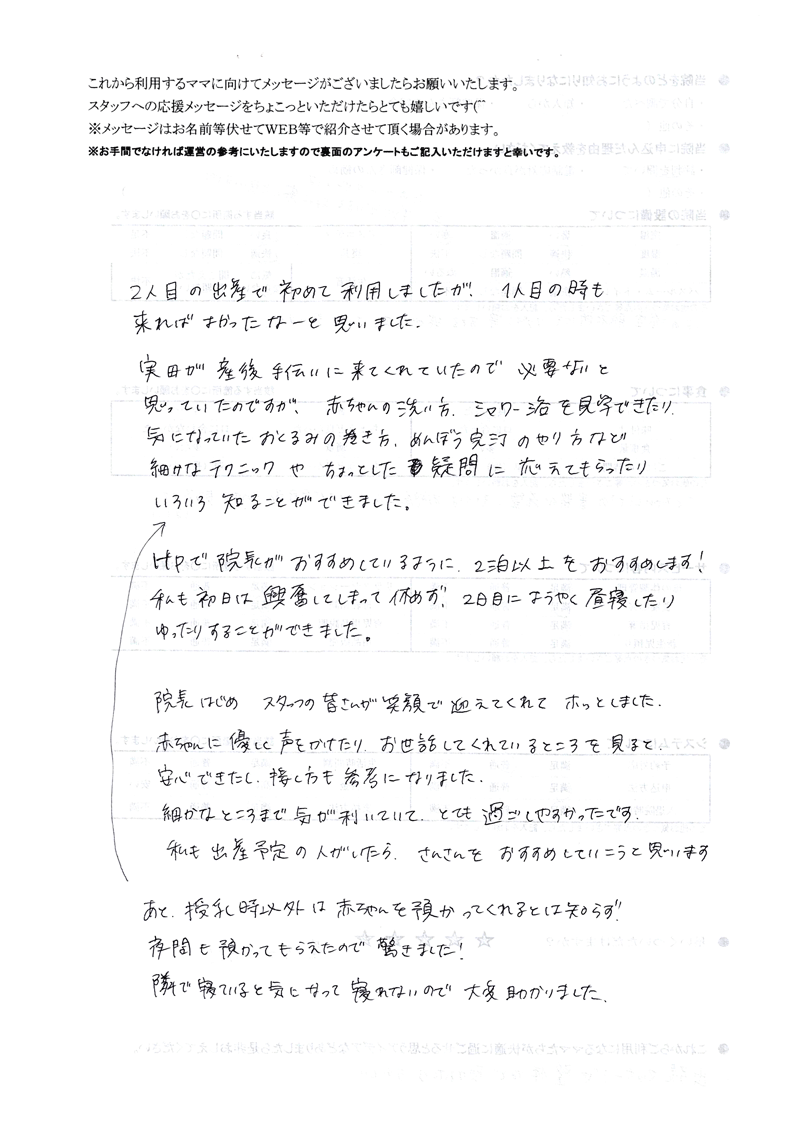 これから利用するママに向けてメッセージがございましたらお願いいたします。
スタッフへの応援メッセージをちょこっといただけたらとても嬉しいです(^^
※メッセージはお名前等伏せてWEB等で紹介させて頂く場合があります。
※お手間でなければ運営の参考にいたしますので裏面のアンケートもご記入いただけますと幸いです。
2人目の出産で初めて利用しましたが、1人目の時も
来ればよかったなーと思いました。
実母が産後手伝いに来てくれていたので必要ないと
思っていたのですが、赤ちゃんの洗い方、シャワー浴を見学できたり、
気になっていたおくるみの巻き方、めんぼう完汁のやり方など
細かなテクニックやちょっとした疑問に応えてもらったり
いろいろ知ることができました。
HPで院長がおすすめしているように、2泊以上をおすすめします!
私も初日は興奮してしまって休めず、2日目にようやく昼寝したり
ゆったりすることができました。
院長はじめ スタッフの皆さんが笑顔で迎えてくれてホッとしました。
赤ちゃんに優しく声をかけたり、お世話してくれているところを見ると、
安心できたし、接し方も参考になりました。
細かなところまで気が利いていて、とても過ごしやすかったです。
私も出産予定の人がいたら、さんさんをおすすめしていこうと思います
あと、授乳時以外は赤ちゃんを預かってくれるとは知らず!
夜間も預かってもらえたので驚きました!
隣で寝ていると気になって寝れないので大変助かりました。